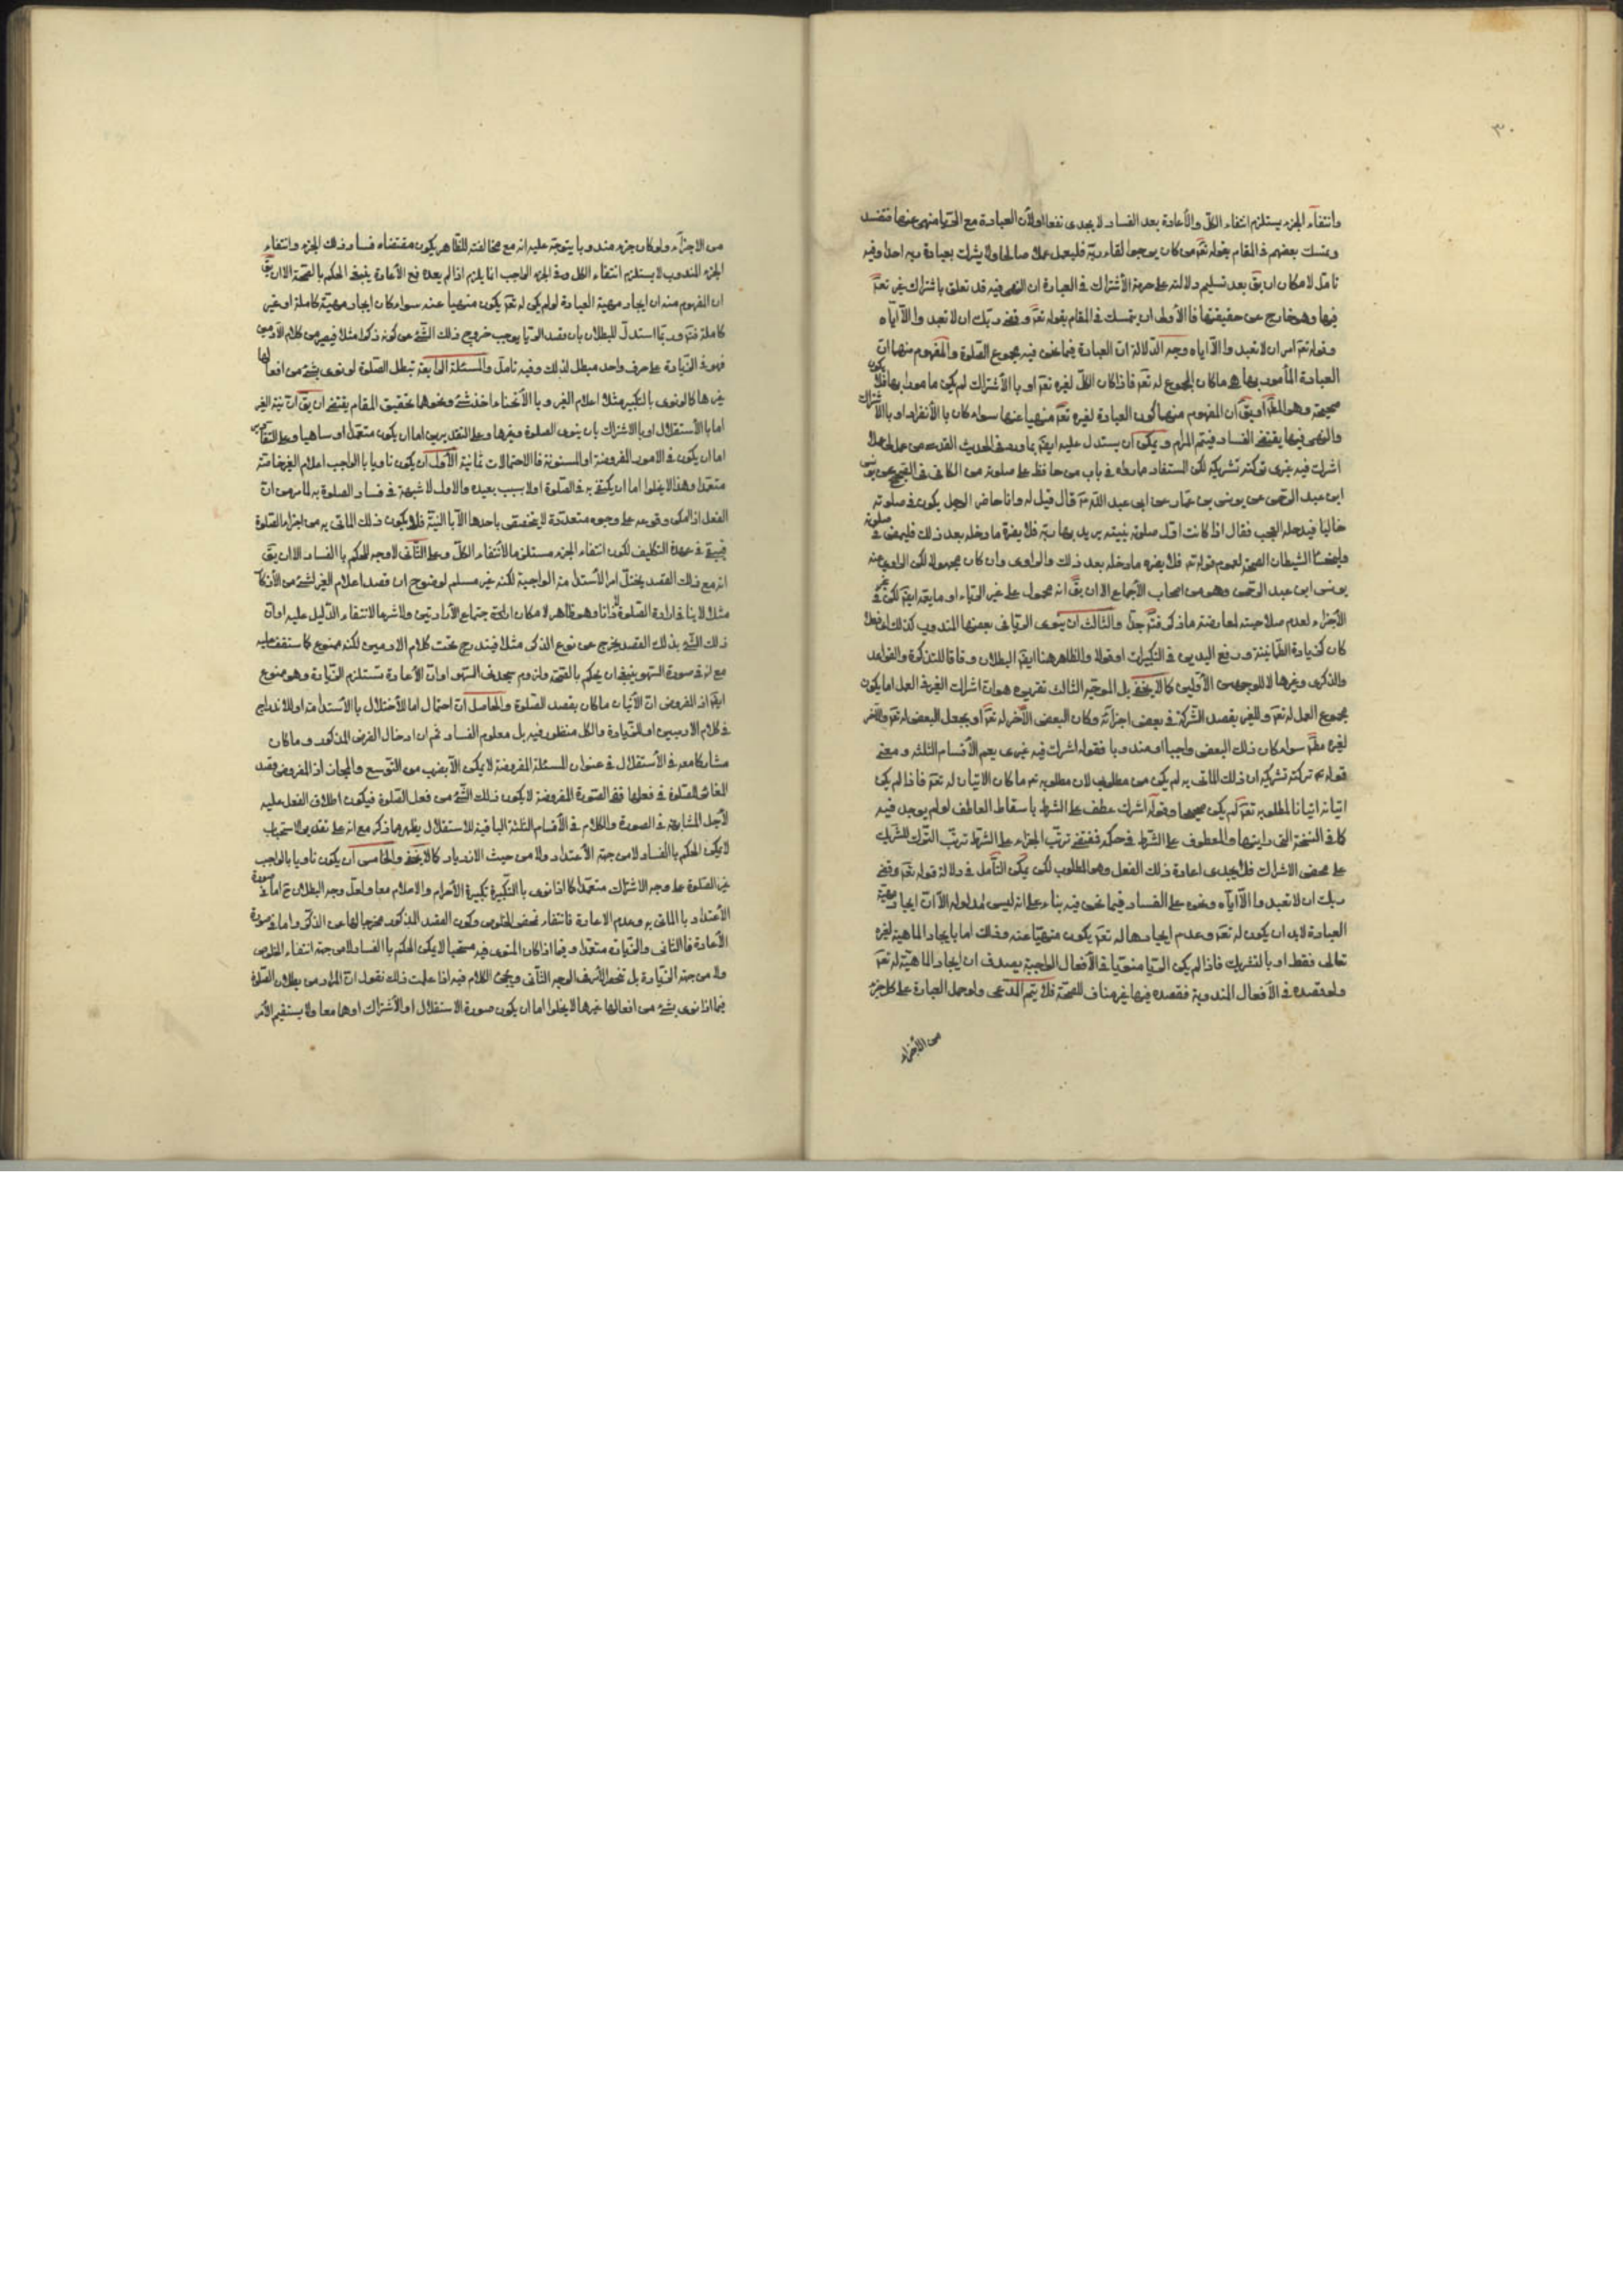 ٣٠
وانتفاء الجزء يستلزم انتفاء الكل والأعادة بعد الفساد لا يجدى نفعا اولأن العبادة مع الريا منهى عنها فتفسد
وتمسك بعضهم فى المقام بقوله تعم من كان يرجوا لقاء ربه فليعمل عملا صالحا ولا يشرك بعبادة ربه احدا وفيه
تامل لامكان ان يق بعد تسليم دلالته على حرمة الأشتراك فى العبادة ان النهى فيه قد تعلق باشتراك غير تعم
فيها وهو خارج عن حقيقتها فا الأولى ان يتمسك فى المقام بقوله تعم وقضى ربك ان لا تعبدوا الا آياه
وقوله تعم امر ان لا تعبدوا الا اياه وجه الدلالة ان العبادة فيما نحن فيه مجموع الصلوة والمفهوم منها ان
العبادة المأمور بها هو ماكان المجموع له تعم فاذا كان الكل لغيره تعم او با الأشتراك لم يكن مامورا بها فلا يكون
صحيحة وهو المط او يق ان المفهوم منها كون العبادة لغيره تعم منهيا عنها سواء كان با الأنفراد او با الأشتراك
والنهى فيها يقتضى الفساد فيتم المرام ويمكن ان يستدل عليه ايضم بما ورد فى الحديث القدسى من عمل لى عملا
اشرك فيه غيرى تركته لشريكه لكن المستفاد مما رواه فى باب من حافظ على صلوته من الكافى فى الصحيح عن يونس
ابن عبد الرحمن عن يونس بن عمار عن ابى عبد الله ع قال قيل له وانا حاضر الرجل يكون فى صلوته
خاليا فيدخله العجب فقال اذا كانت اول صلوته بنيته يريد بها ربه فلا يضره ما دخله بعد ذلك فليمض فى صلوته
وليخسأ الشيطان الصحة لعموم قوله ع فلا يضره ما دخله بعد ذلك والراوى وان كان مجهولا لكن الراوى عنه
يونس ابن عبد الرحمن وهو من اصحاب الأجماع الا ان يق انه محمول على غير الرياء او ما يعمه ايضم لكن فى غير
الأجزاء لعدم صلاحيته لمعارضة ما ذكر فتم جدا والثالث ان ينوى الريا فى بعضها المندوب كذلك او فعلا
كان كزيادة الطمانينة ورفع اليدين فى التكبيرات او قولا والظاهر هنا ايضم البطلان وفاقا للتذكرة والقواعد
والذكرى وغيرها لا للوجهين الأولين كما لا يخفى بل الوجه الثالث تقريره هو ان اشراك الغير فى العمل اما يكون
مجموع العمل له تعم وللغير بقصد الشركة فى بعض اجزائه وكان البعض الآخر له تعم او يجعل البعض له تعم والآخر
لغيره مطم سواء كان ذلك البعض واجبا او مندوبا فقوله اشرك فيه غيرى يعم الأقسام الثلثة ومعنى
قوله ع تركته لشريكه ان ذلك الماتى به لم يكن من مطلوبى لان مطلوبه تعم ما كان الاتيان له تعم فاذا لم يكن
اتيانه اتيانا لمطلوبه تعم لم يكن صحيحا وقوله اشرك عطف على الشرط باسقاط العاطف لو لم يوجد فيه
كما فى النسخة التى رايتها والمعطوف على الشرط فى حكمه فيقتضى ترتب الجزاء على الشرط ترتب الترك للشريك
على محض الاشراك فلا يجدى اعادة ذلك الفعل وهو المطلوب لكن يمكن التأمل فى دلالة قوله تعم وقضى
ربك ان لا تعبدوا الا اياه ونحوه على الفساد فيما نحن فيه بناء على انه ليس مدلوله الا ان ايجاد مهية
العبادة لابد ان يكون له تعم وعدم ايجادها له تعم يكون منهيا عنه وذلك اما بايجاد الماهية لغيره
تعالى فقط او بالتشريك فاذا لم يكن الريا منويا فى الأفعال الواجبة يصدق ان ايجاد الماهية له تعم
ولو قصده فى الأفعال المندوبة فقصده فيها غير مناف للصحة فلا يتم المدعى ولو حمل العبادة على كل جزء
من الأجزاء
من الاجزاء ولو كان جزء مندوبا يتوجه عليه انه مع مخالفته للظاهر يكون مقتضاه فساد ذلك الجزء وانتفاء
الجزء المندوب لا يستلزم انتفاء الكل وفى الجزء الواجب انما يلزم اذا لم يعده فمع الأعادة ينبغى الحكم بالصحة الا ان يق
ان المفهوم منه ان ايجاد مهية العبادة لو لم يكن له تعم يكون منهيا عنه سواء كان ايجاد مهية كاملة او غير
كاملة فتم وربما استدل للبطلان بان قصد الريا يوجب خروج ذلك الشئ عن كونه ذكرا مثلا فيصير من كلام الآدميين
فهو فى الزيادة على حرف واحد مبطل لذلك وفيه تامل والمسئلة الرابعة تبطل الصلوة لو نوى بشئ من افعالها
غيرها كما لو نوى بالتكبير مثلا اعلام الغير وبا الأنحناء اخذ شئ ونحوهما تحقيق المقام يقتضى ان يق ان نية الغير
اما با الأستقلال او با الاشتراك بان ينوى الصلوة وغيرها وعلى التقديرين اما ان يكون متعمدا او ساهيا وعلى التقادير
اما ان يكون فى الامور المفروضة او المسنونة فا الاحتمالات ثمانية الأول ان يكون ناويا با الواجب اعلام الغير خاصة
متعمدا وهذا لا يخلوا اما ان يكتفى به فى الصلوة اولا بسبب يعيده والاول لا شبهة فى فساد الصلوة به لما مر من ان
الفعل اذا امكن وقوعه على وجوه متعددة لا يختص باحدها الا بالنية فلا يكون ذلك الماتى به من اجزاء الصلوة
فيبقى فى عهدة التكليف لكون انتفاء الجزء مستلزما لأنتفاء الكل وعلى الثانى لا وجه للحكم با الفساد الا ان يق
انه مع ذلك القصد يختل امر الأستدامة الواجبة لكنه غير مسلم لوضوح ان قصد اعلام الغير لشئ من الأذكار
مثلا لا ينافى ارادة الصلوة وهو ظاهر لامكان اجتماع الأرادتين ولا شرعا لانتفاء الدليل عليه او ان
ذلك الشئ بذلك القصد يخرج عن نوع الذكر مثلا فيندرج تحت كلام الادميين لكنه ممنوع كما ستقف عليه
مع انه فى صورة السهو ينبغى ان يحكم بالصحة ولزوم سجدتى السهو او ان الأعادة تستلزم الزيادة وهو ممنوع
ايضم اذ المفروض ان الأتيان ما كان بقصد الصلوة والحاصل ان احتمال اما للأختلال با الأستدامة او للاندراج
فى كلام الادميين او للزيادة والكل منظور فيه بل معلوم الفساد ثم ان ادخال الفرض المذكور وما كان
مشاركا معه فى الأستقلال فى عنوان المسئلة المفروضة لا يكون الا بضرب من التوسع والمجاز اذ المفروض قصد
المغاير للصلوة فى فعلها ففى الصورة المفروضة لا يكون ذلك الشئ من فعل الصلوة فيكون اطلاق الفعل عليه
لأجل المشابهة فى الصورة والكلام فى الأقسام الثلثة الباقية للاستقلال يظهر مما ذكر مع انه على تقدير الاستحباب
لا يمكن الحكم با الفساد لا من جهة الأعتداد ولا من حيث الازدياد كما لا يخفى والخامس ان يكون ناويا با الواجب
غير الصلوة على وجه الاشتراك متعمدا كما اذا نوى با التكبيرة تكبيرة الأحرام والاعلام معا ولعل وجه البطلان ح اما فى صورة
الأعتداد با الماتى به وعدم الاعادة فانتفاء تمحض الخلوص وكون القصد المذكور مخرجا لها عن الذكر واما فى صورة
الأعادة فا الثانى والزيادة متعمدا وفيما اذا كان المنوى فيه مستحبا لا يمكن الحكم با الفساد لا من جهة انتفاء الخلوص
ولا من جهة الزيادة بل تنحصر الأمر فى الوجه الثانى ويجئ الكلام فيه اذا علمت ذلك نقول ان المراد من بطلان الصلوة
فيما اذا نوى بشئ من افعالها غيرها لا يخلوا اما ان يكون صورة الاستقلال او الأشتراك او هما معا ولا يستقيم الأمر